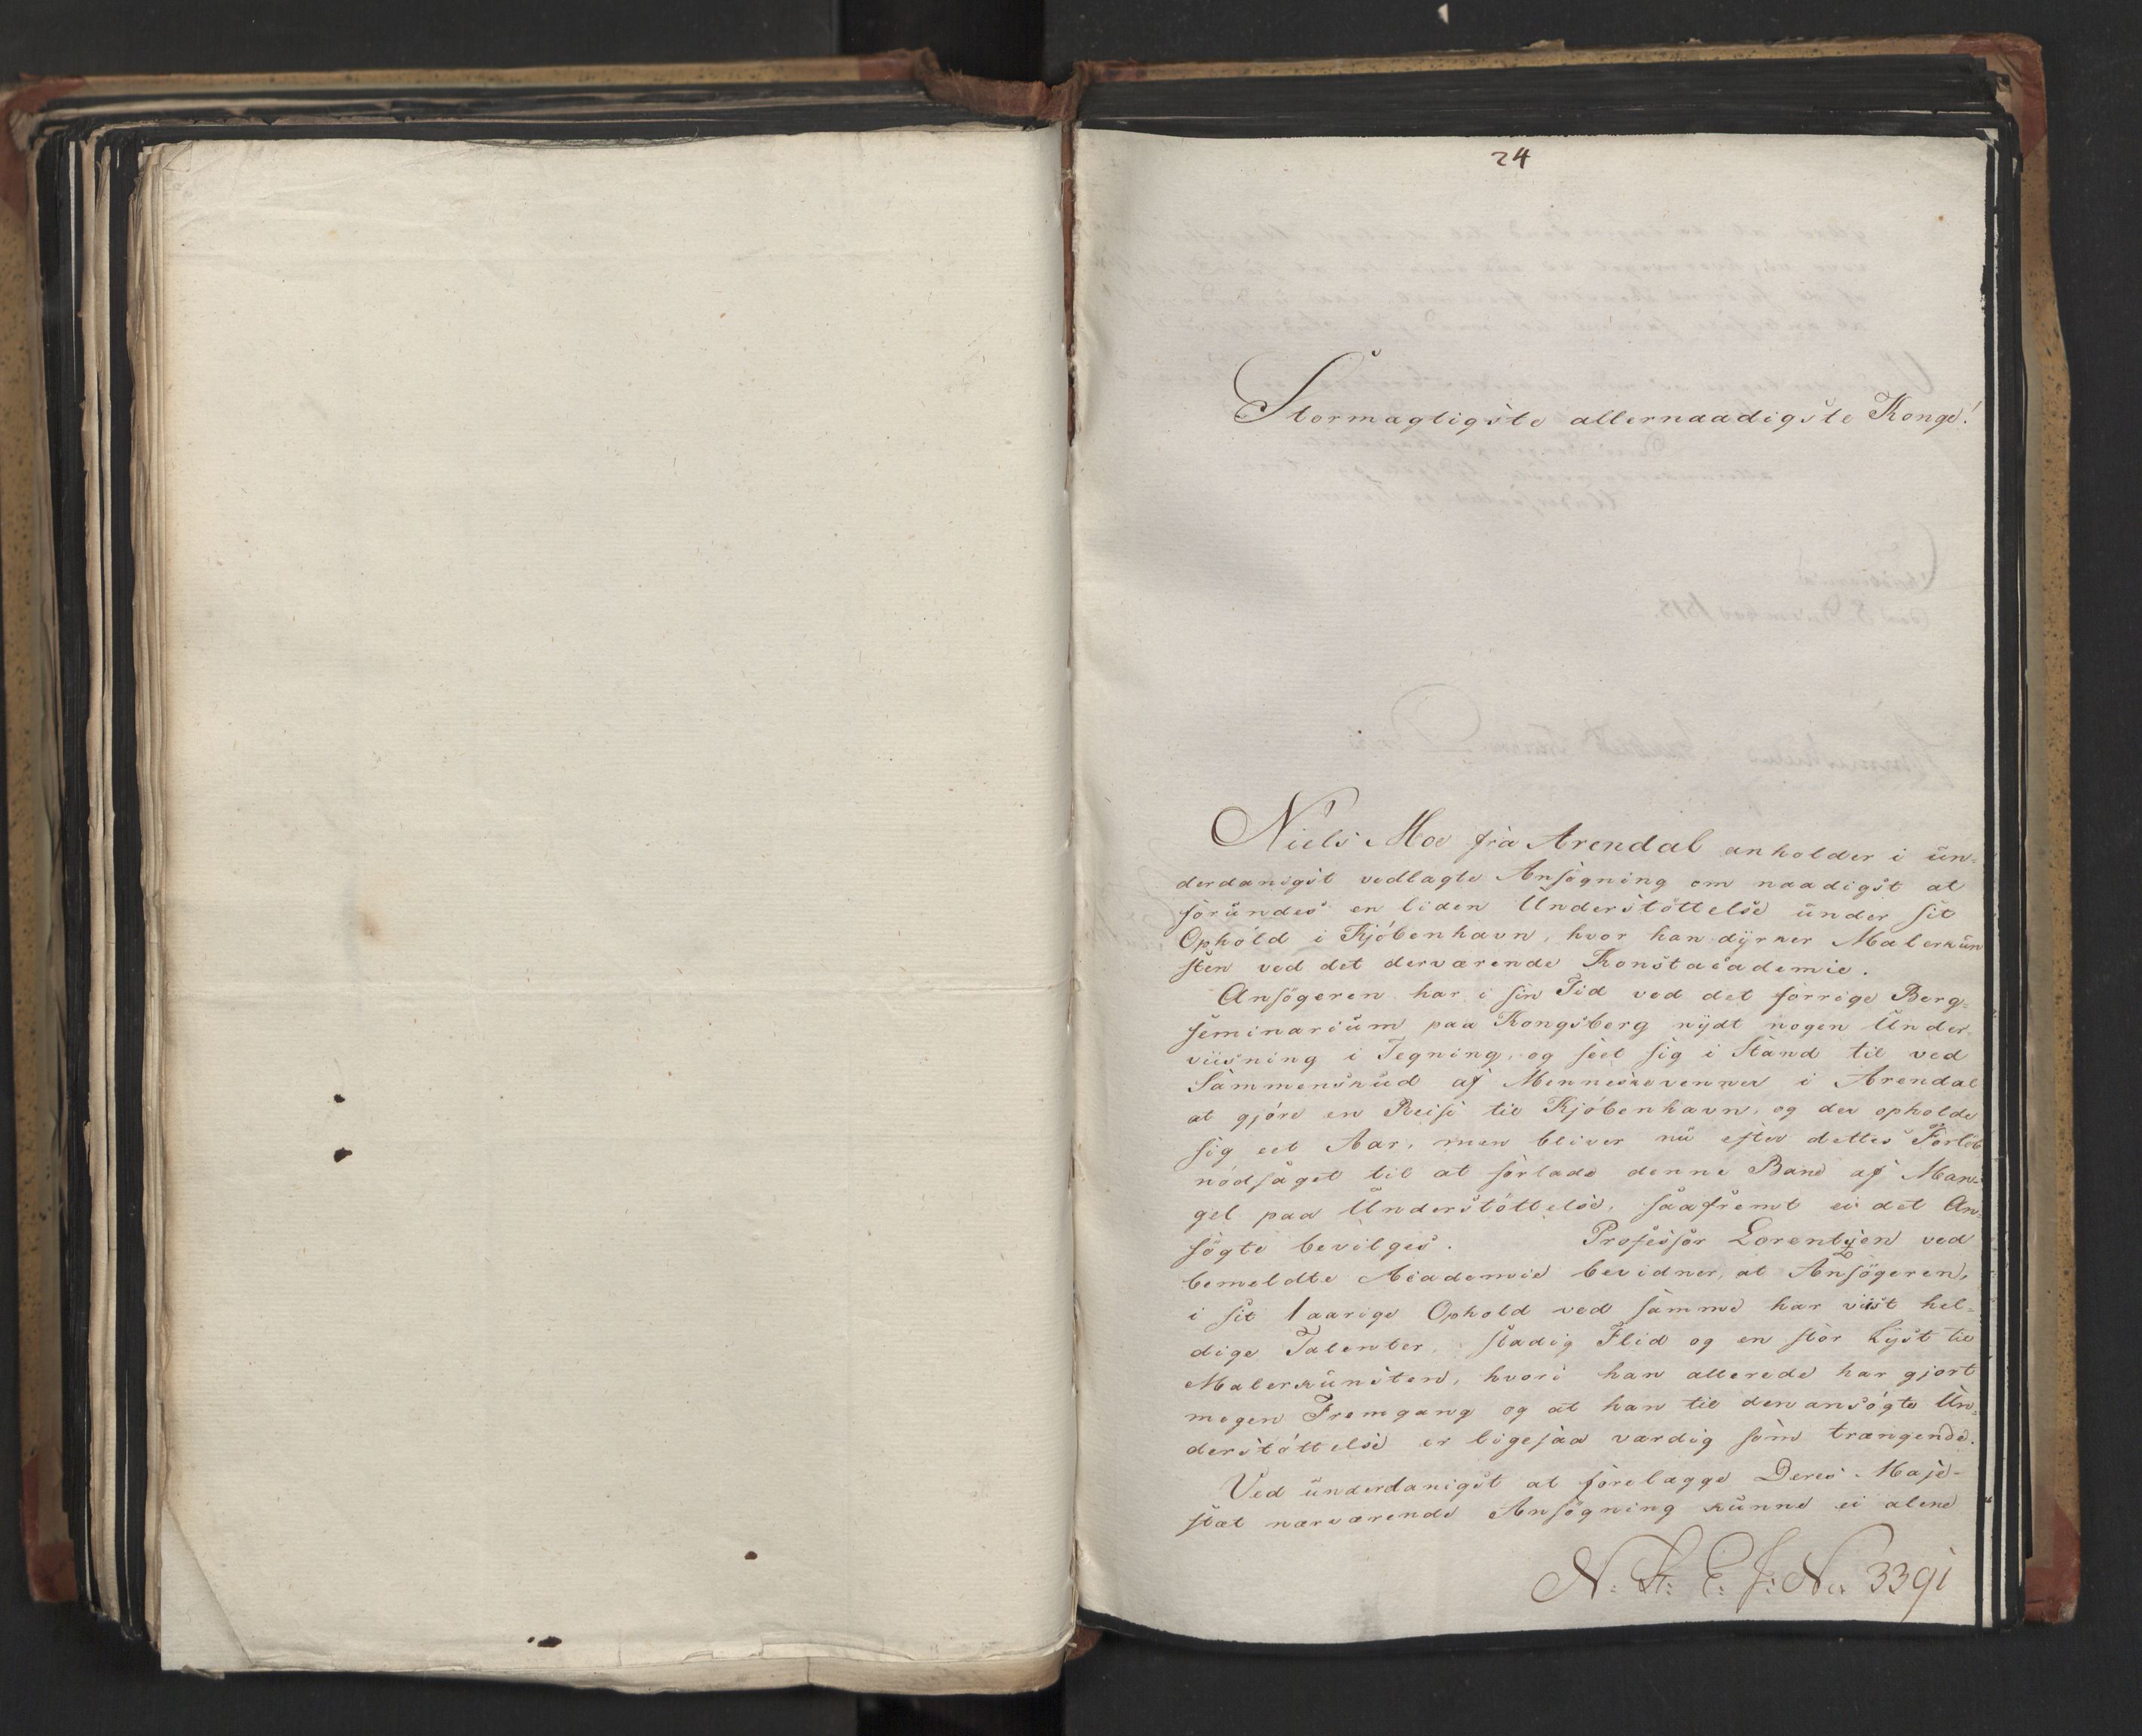 24
Stormagtigste allernaadigste Konge!
Niels Moe fra Arendal anholder i un=
derdanigst vedlagte Ansøgning om naadigst at
forundes en liden Understøttelse under sit
Ophold i Kjøbenhavn, hvor han dyrker Malerkun
sten ved det derværende Konstacademie.
Ansøgeren har i sin Tid ved det forrige Berg=
seminarium paa Kongsberg nydt nogen Under=
viisning i Tegning, og seet sig i Stand til ved
Sammenskud af Menneskevenner i Arendal
at gjøre en Reise til Kjøbenhavn, og der opholde
sig eet Aar, men bliver nu efter dettes Forløb
nødsaget til at forlade denne Bane af Man=
gel paa Understøttelse, saafremt ei det An=
søgte bevilges. Professor Lorentzen ved
bemeldte Academie bevidner, at Ansøgeren,
i sit 1 aarige Ophold ved samme har viist hel=
dige Talenter, stadig Flid og en stor Lyst til
Malerkunsten, hvori han allerede har gjort
megen Fremgang og at han til den ansøgte Un=
derstøttelse er ligesaa værdig som trængende.
Ved underdanigst at forelægge Deres Maje-
stæt nærværende Ansøgning kunne ei alene
N: St: C: J: No 3391